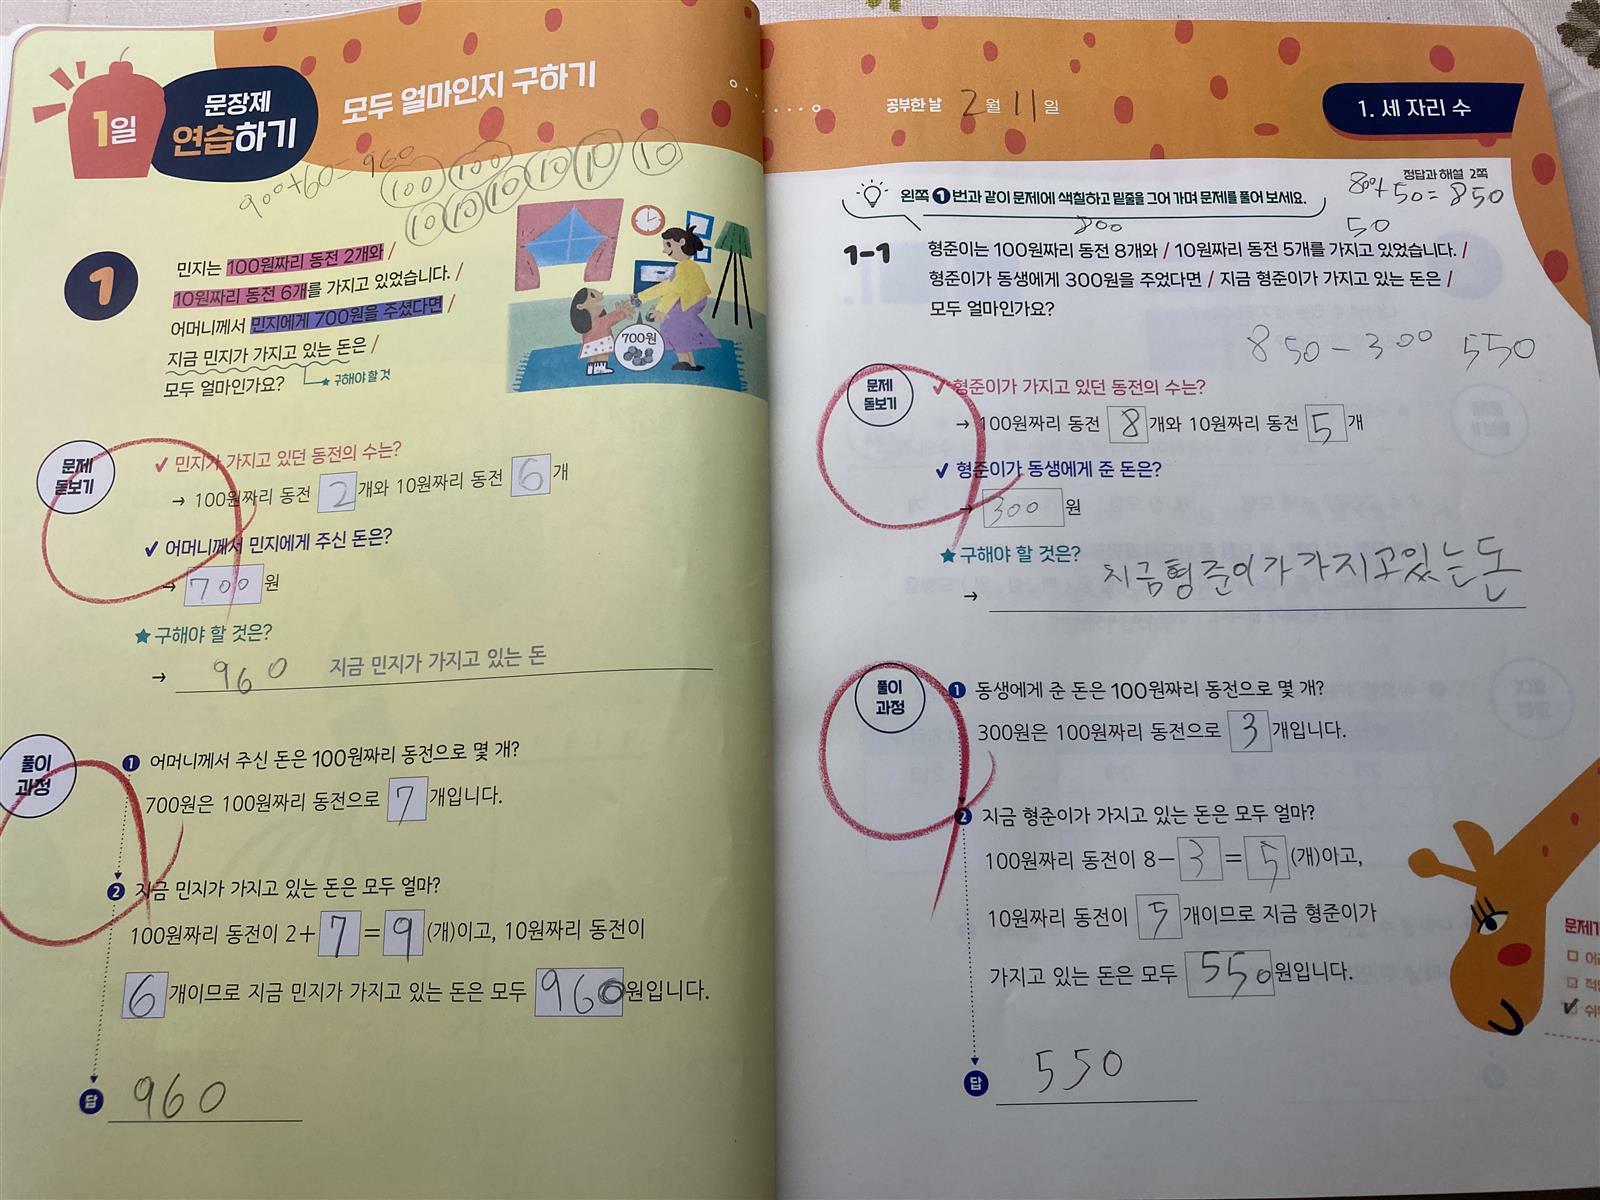 1일
문장제
연습하기
모두 얼마인지 구하기
900+60=960
100 100
10 10 10 10 10 10
1
민지는 100원짜리 동전 2개와 /
10원짜리 동전 6개를 가지고 있었습니다. /
어머니께서 민지에게 700원을 주셨다면 /
지금 민지가 가지고 있는 돈은 /
모두 얼마인가요?
★ 구해야 할 것
700원
문제
돌보기
✓ 민지가 가지고 있던 동전의 수는?
→ 100원짜리 동전 2 개와 10원짜리 동전 6 개
✓ 어머니께서 민지에게 주신 돈은?
→ 700 원
★ 구해야 할 것은?
→ 960 지금 민지가 가지고 있는 돈
풀이
과정
1 어머니께서 주신 돈은 100원짜리 동전으로 몇 개?
700원은 100원짜리 동전으로 7 개입니다.
2 지금 민지가 가지고 있는 돈은 모두 얼마?
100원짜리 동전이 2+7=9(개)이고, 10원짜리 동전이
6 개이므로 지금 민지가 가지고 있는 돈은 모두 960원입니다.
답 960
공부한 날 2월 11일
1. 세 자리 수
정답과 해설 2쪽
800+50=850
왼쪽 1번과 같이 문제에 색칠하고 밑줄을 그어 가며 문제를 풀어 보세요.
800
50
1-1
형준이는 100원짜리 동전 8개와 / 10원짜리 동전 5개를 가지고 있었습니다. /
형준이가 동생에게 300원을 주었다면 / 지금 형준이가 가지고 있는 돈은 /
모두 얼마인가요?
850-300 550
문제
돌보기
✓ 형준이가 가지고 있던 동전의 수는?
→ 100원짜리 동전 8 개와 10원짜리 동전 5 개
✓ 형준이가 동생에게 준 돈은?
→ 300 원
★ 구해야 할 것은?
→ 지금형준이가가지고있는돈
풀이
과정
1 동생에게 준 돈은 100원짜리 동전으로 몇 개?
300원은 100원짜리 동전으로 3 개입니다.
2 지금 형준이가 가지고 있는 돈은 모두 얼마?
100원짜리 동전이 8-3=5(개)이고,
10원짜리 동전이 5 개이므로 지금 형준이가
가지고 있는 돈은 모두 550원입니다.
답 550